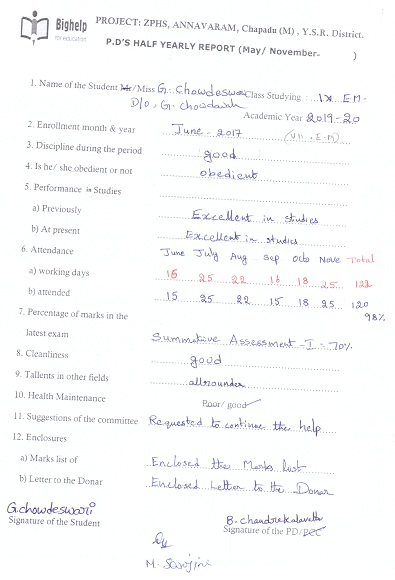 Bighelp
for education
PROJECT: ZPHS, ANNAVARAM, Chapadu (M) , Y.S.R. District.
P.D'S HALF YEARLY REPORT (May/ November-        )
1. Name of the Student Mr/Miss G. Chowdeswari Class Studying : IX EM-
D/o, G. Chowdaiah
Academic Year 2019-20
2. Enrollment month & year June - 2017 (VII . E.M)
3. Discipline during the period good
4. Is he/ she obedient or not obedient
5. Performance is Studies
a) Previously Excellent in studies
b) At present Excellent in studies
6. Attendance June July Aug Sep Octo Nove Total
a) working days 15 25 22 16 18 25 122
b) attended 15 25 22 15 18 25 120
98%
7. Percentage of marks in the
latest exam Summative Assessment - I = 70%
8. Cleanliness good
9. Tallents in other fields allrounder
10. Health Maintenance Poor/ good
11. Suggestions of the committee Requested to continue the help
12. Enclosures
a) Marks list of Enclosed the Marks list
b) Letter to the Donar Enclosed Letter to the Donar
G.chowdeswari
Signature of the Student
B. chandrakalavathi
Signature of the PD/PCC
M. Sarojini